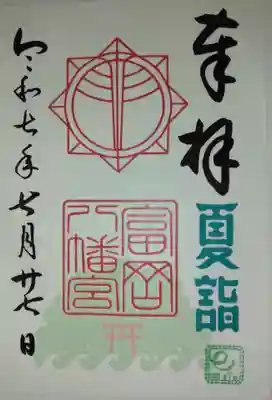 奉拝
夏詣
富岡
八幡宮
令和七年七月廿七日